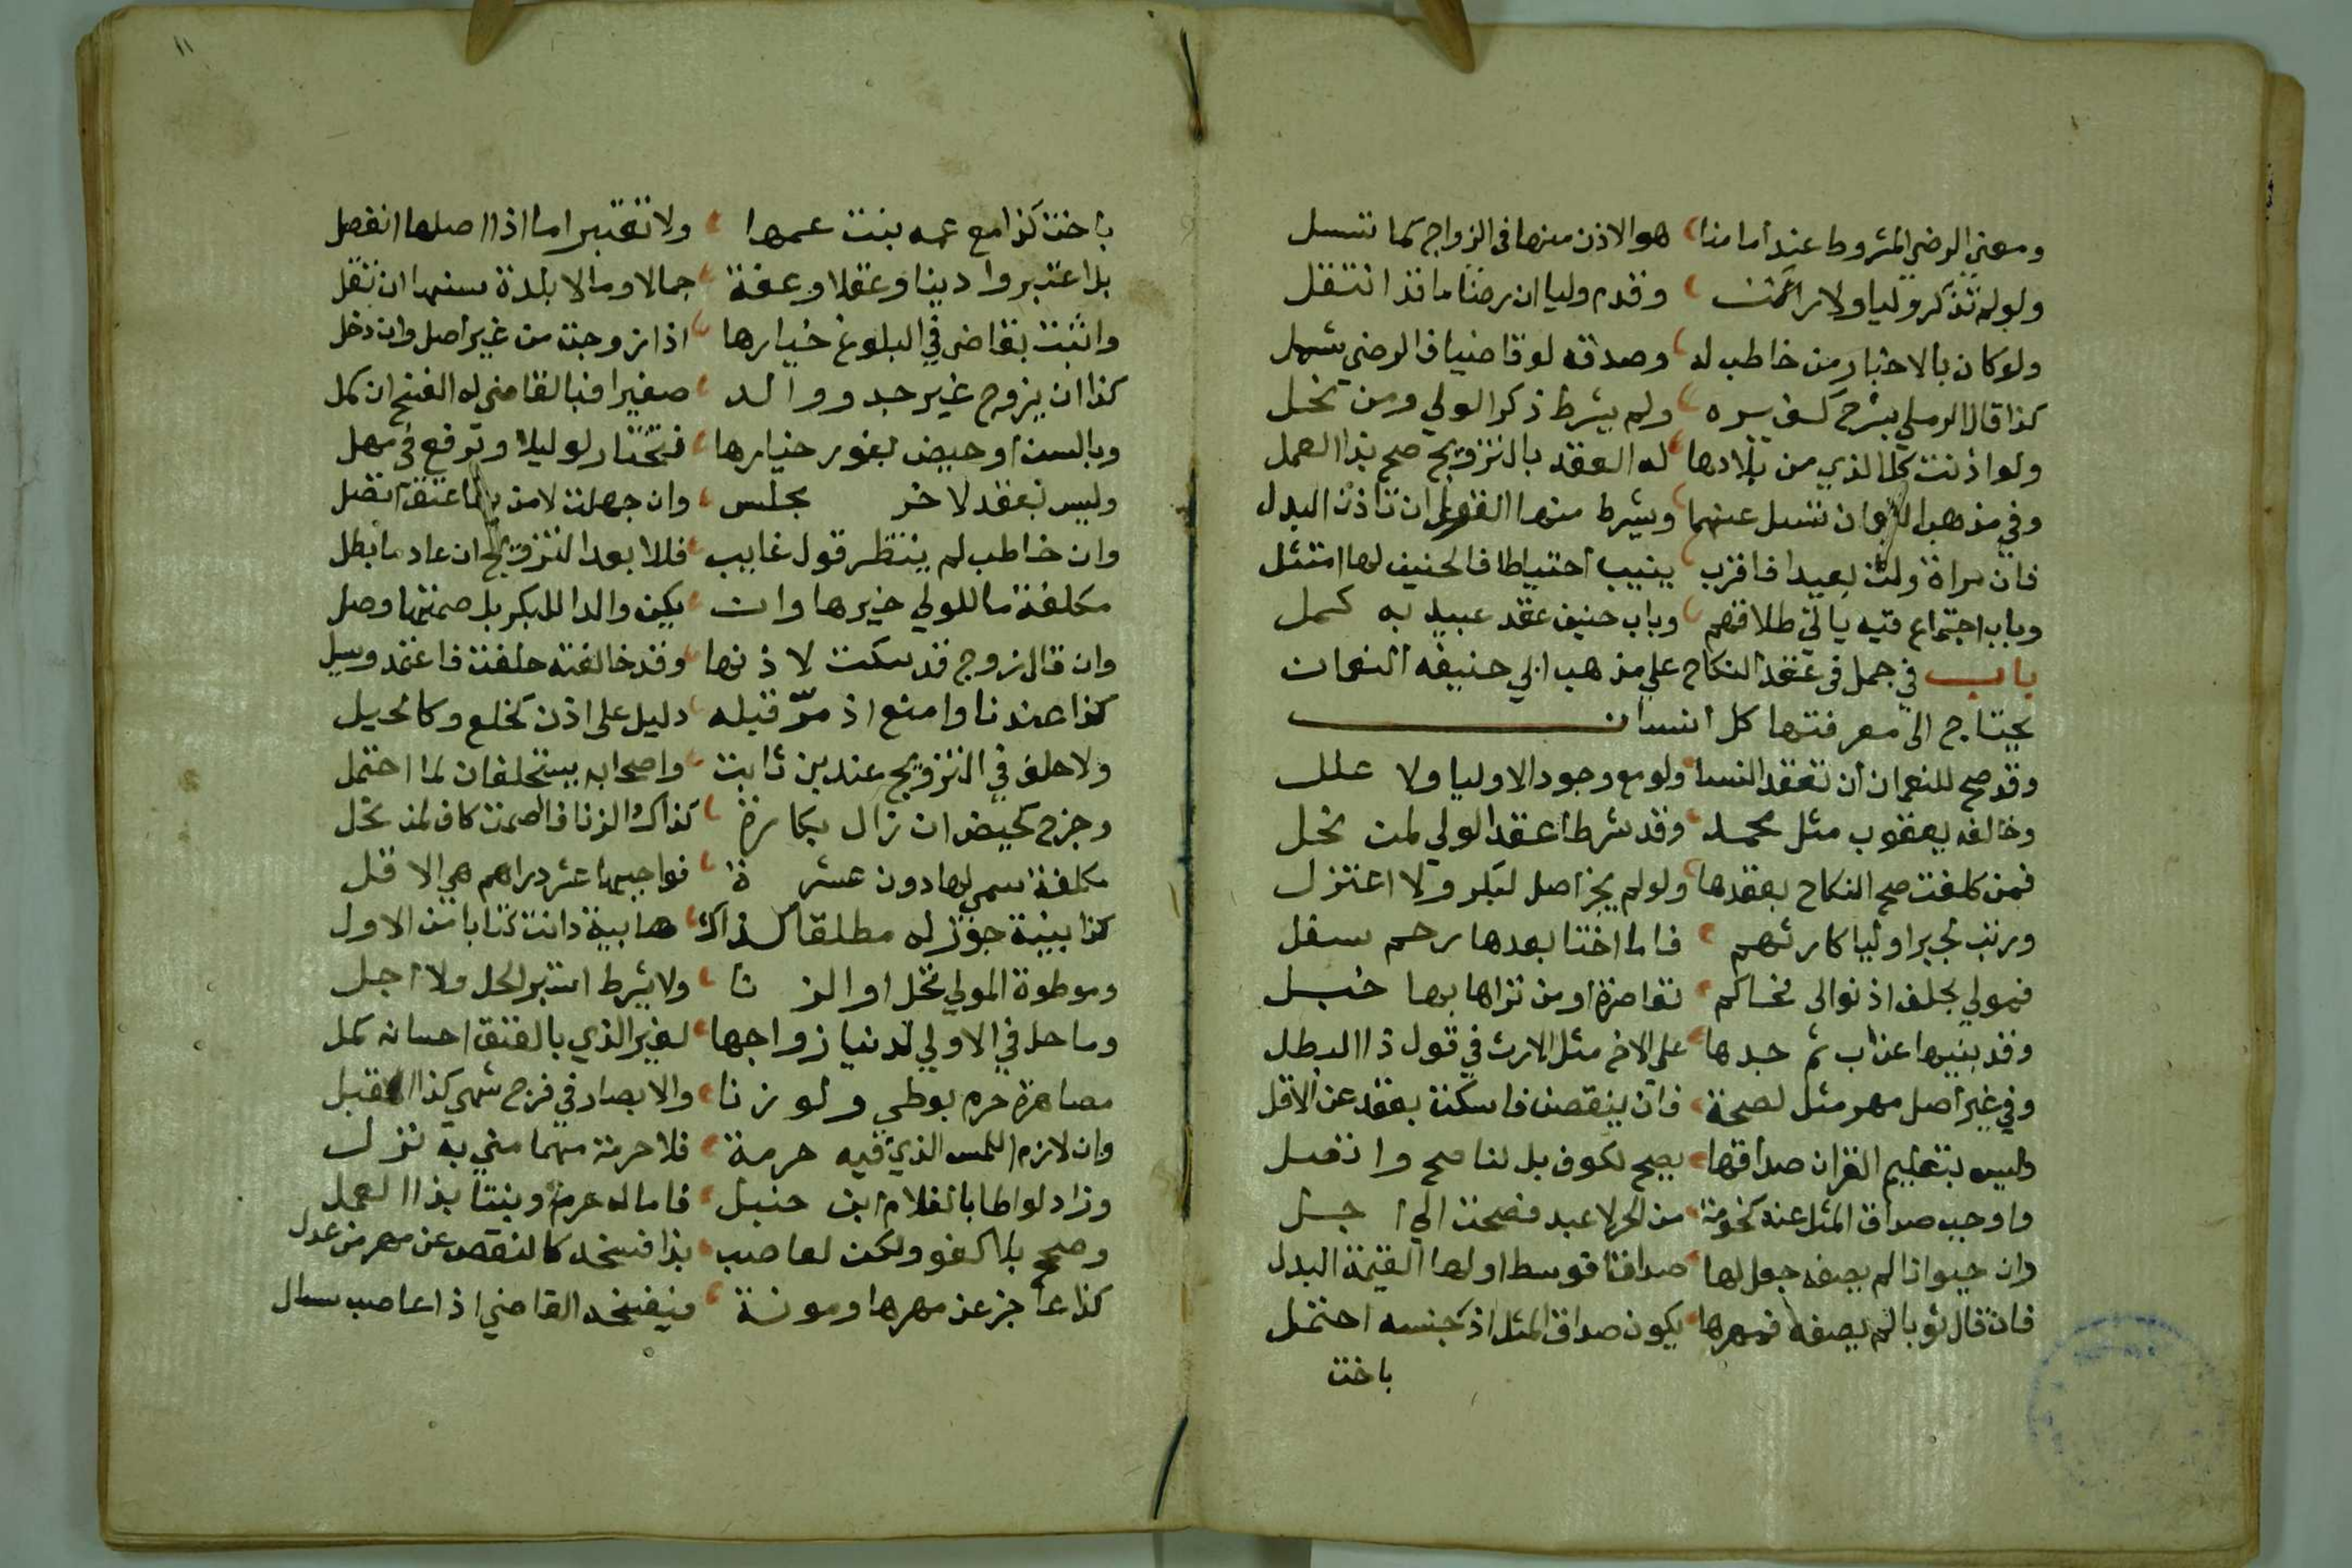 ومعني الرضي المشروط عند امامنا هو الاذن منها في الزواج كما تسل
ولو لم تذكر وليا ولا راكنت وقدم وليا ان رضنا ما قد انتقل
ولو كان بالاخبار من خاطب له وصدقه لو قاضيا في الرضي شمل
كذا قال الرملي بشرح ولم يشرط ذكر الولي ومن نخل
ولو اذنت كل الذي من بلادها له العقد بالتزويج صح بذا العمل
وفي مذهب ان تسل عنهما ويشرط منها ان تاذن البدل
فان مراة ولت بعيدا فاقرب ينيب احتياطا فالحنيف لها امتثل
وباب اجتماع فيه ياتي طلاقهم وباب حنيف عقد عبيد به كمل
باب في جمل في عقد النكاح علي مذهب ابي حنيفه النعمان
يحتاج الى معرفتها كل انسان
وقد صح للنعمان ان تعقد النسا ولو مع وجود الاوليا ولا علل
وخالفه يعقوب مثل محمد وقد شرطا عقد الولي لمن نخل
فمن كلفت صح النكاح بعقدها ولو لم يجز اصل لبكر ولا اعتزل
ورتب لجبر اوليا كارثهم فاما اختا بعدها رحم سفل
فمولي بحلف اذ توالى فحاكم تقاصرة او من تراها بها خبل
وقد بنيها عن اب ثم جدها على الاخ مثل الارث في قول ذا البطل
وفي غير اصل مهر مثل لصحة فان ينقصن فاسكت بعقد عن الاقل
وليس بتعليم القران صداقها يصح لكوف بل لنا صح وانفصل
واوجب صداق المثل عنه كخدمة من الحر لا عبد فصحت الي اجل
وان حيوانا لم يصفه جعل لها صداقا فوسط او لها القيمة البدل
فان قال ثوبا لم يصفه فمهرها يكون صداق المثل اذ جنسه احتمل
باخت
١١
باخت كذا مع عمه بنت عمها ولا تعتبر اما اذا اصلها انفصل
بلا اعتبروا دينا وعقلا وعفة جمالا ومالا بلدة سنها ان تقل
واثبت بقاضي في البلوغ خيارها اذا زوجت من غير اصل وان دخل
كذا ان يزوج غير جد ووالد صغيرا فبالقاضي له الفسخ ان كمل
وبالسن او حيض بفور خيارها فتختار لو ليلا وترفع في مهل
وليس بعقد لاخر بجلس وان جهلت لا من عتقا اتصل
وان خاطب لم ينتظر قول غايب فللا بعد التزويج ان عاد ما بطل
مكلفة ما للولي خيرها وان يكن والدا للبكر بل صمتها وصل
وان قال زوج قد سكت لاذنها وقد خالفته حلفت فاعتمد وسل
كذا عندنا وامنع اذ مر قبله دليل على اذن كخلع وكالحيل
ولا حلف في التزويج عند بن ثابت واصحابه يستحلفان لما احتمل
وجزح كحيض ان زال بكارة كذاك الزنا فالصمت كاف لمن نخل
مكلفة سمي لها دون عشرة فواجبها عشر دراهم هي الاقل
كذا بينة جوز له مطلقا كذاك دانت كتابا من الاول
وموطوة المولي تحل او الزنا ولا يشرط استبر لحل ولا اجل
وما حل في الاولي لدنيا زواجها لغير الذي بالفتق احسانه كمل
مصاهرة حرم بوطي ولو زنا والابصار في فرج شهي كذا القبل
وان لازم اللمس الذي فيه حرمة فلا حرمة مهما مني به نزل
وزاد لواطا بالغلام ابن حنبل فاما له حرم وبنتا بذا العمل
وصحح بلا كفو ولكن لعاصب بذا فسخه كالنقص عن مهر من عدل
كذا عاجز عن مهرها ومونة فيفسخه القاضي اذا عاصب سال